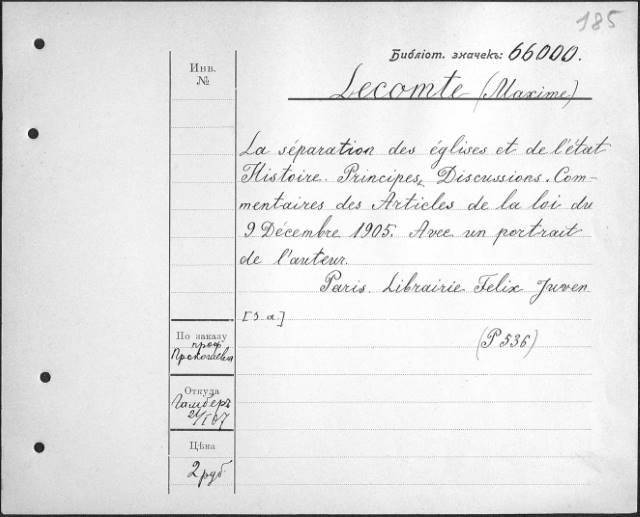 185
Библіот. значекъ: 66000.
Инв.
№
Lecomte (Maxime)
La séparation des églises et de l'état
Histoire. Principes, Discussions. Com-
mentaires des Articles de la loi du
9 Décembre 1905. Avec un portrait
de l'auteur.
Paris. Librairie Felix Juven
[S. a.]
(P 536)
По заказу
проф.
Откуда
Гамберъ
21/I 07
Цѣна
2 руб